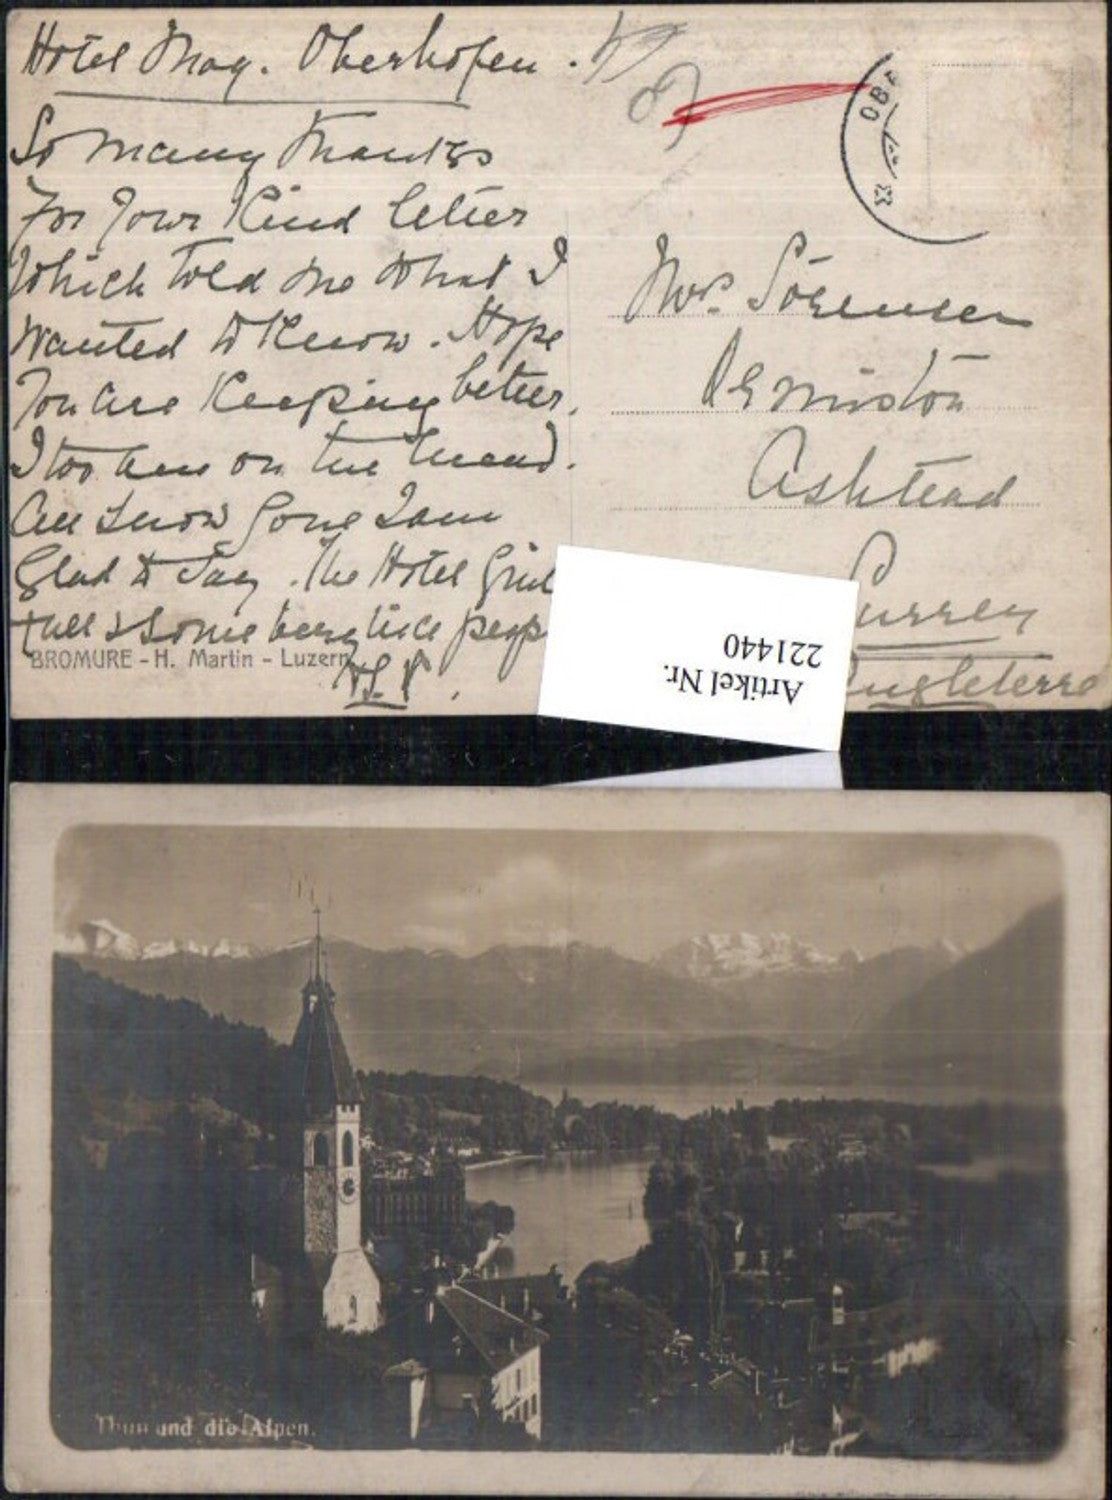 Hotel May. Oberhofen.
So many thanks
For your kind letter
Which told me what I
Wanted to know. Hope
You are keeping better.
I too am on the mend.
All snow gone I am
Glad to say. The Hotel
full & some very nice
BROMURE - H. Martin - Luzern
OBE
Mrs. Sörensen
Ashtead
Surrey
Angleterre
Artikel Nr.
221440
Thun und die Alpen.